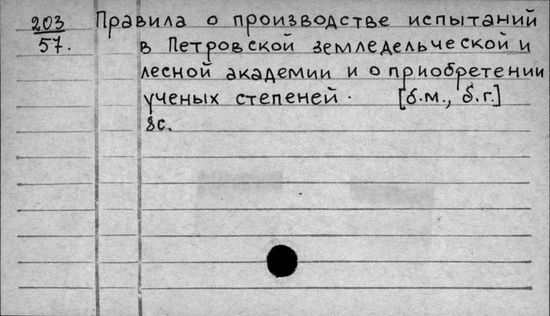 203 Правила о производстве испытаний
57. в Петровской земледельческой и
лесной академии и о приобретении
ученых степеней. [б.м., б.г.]
8с.